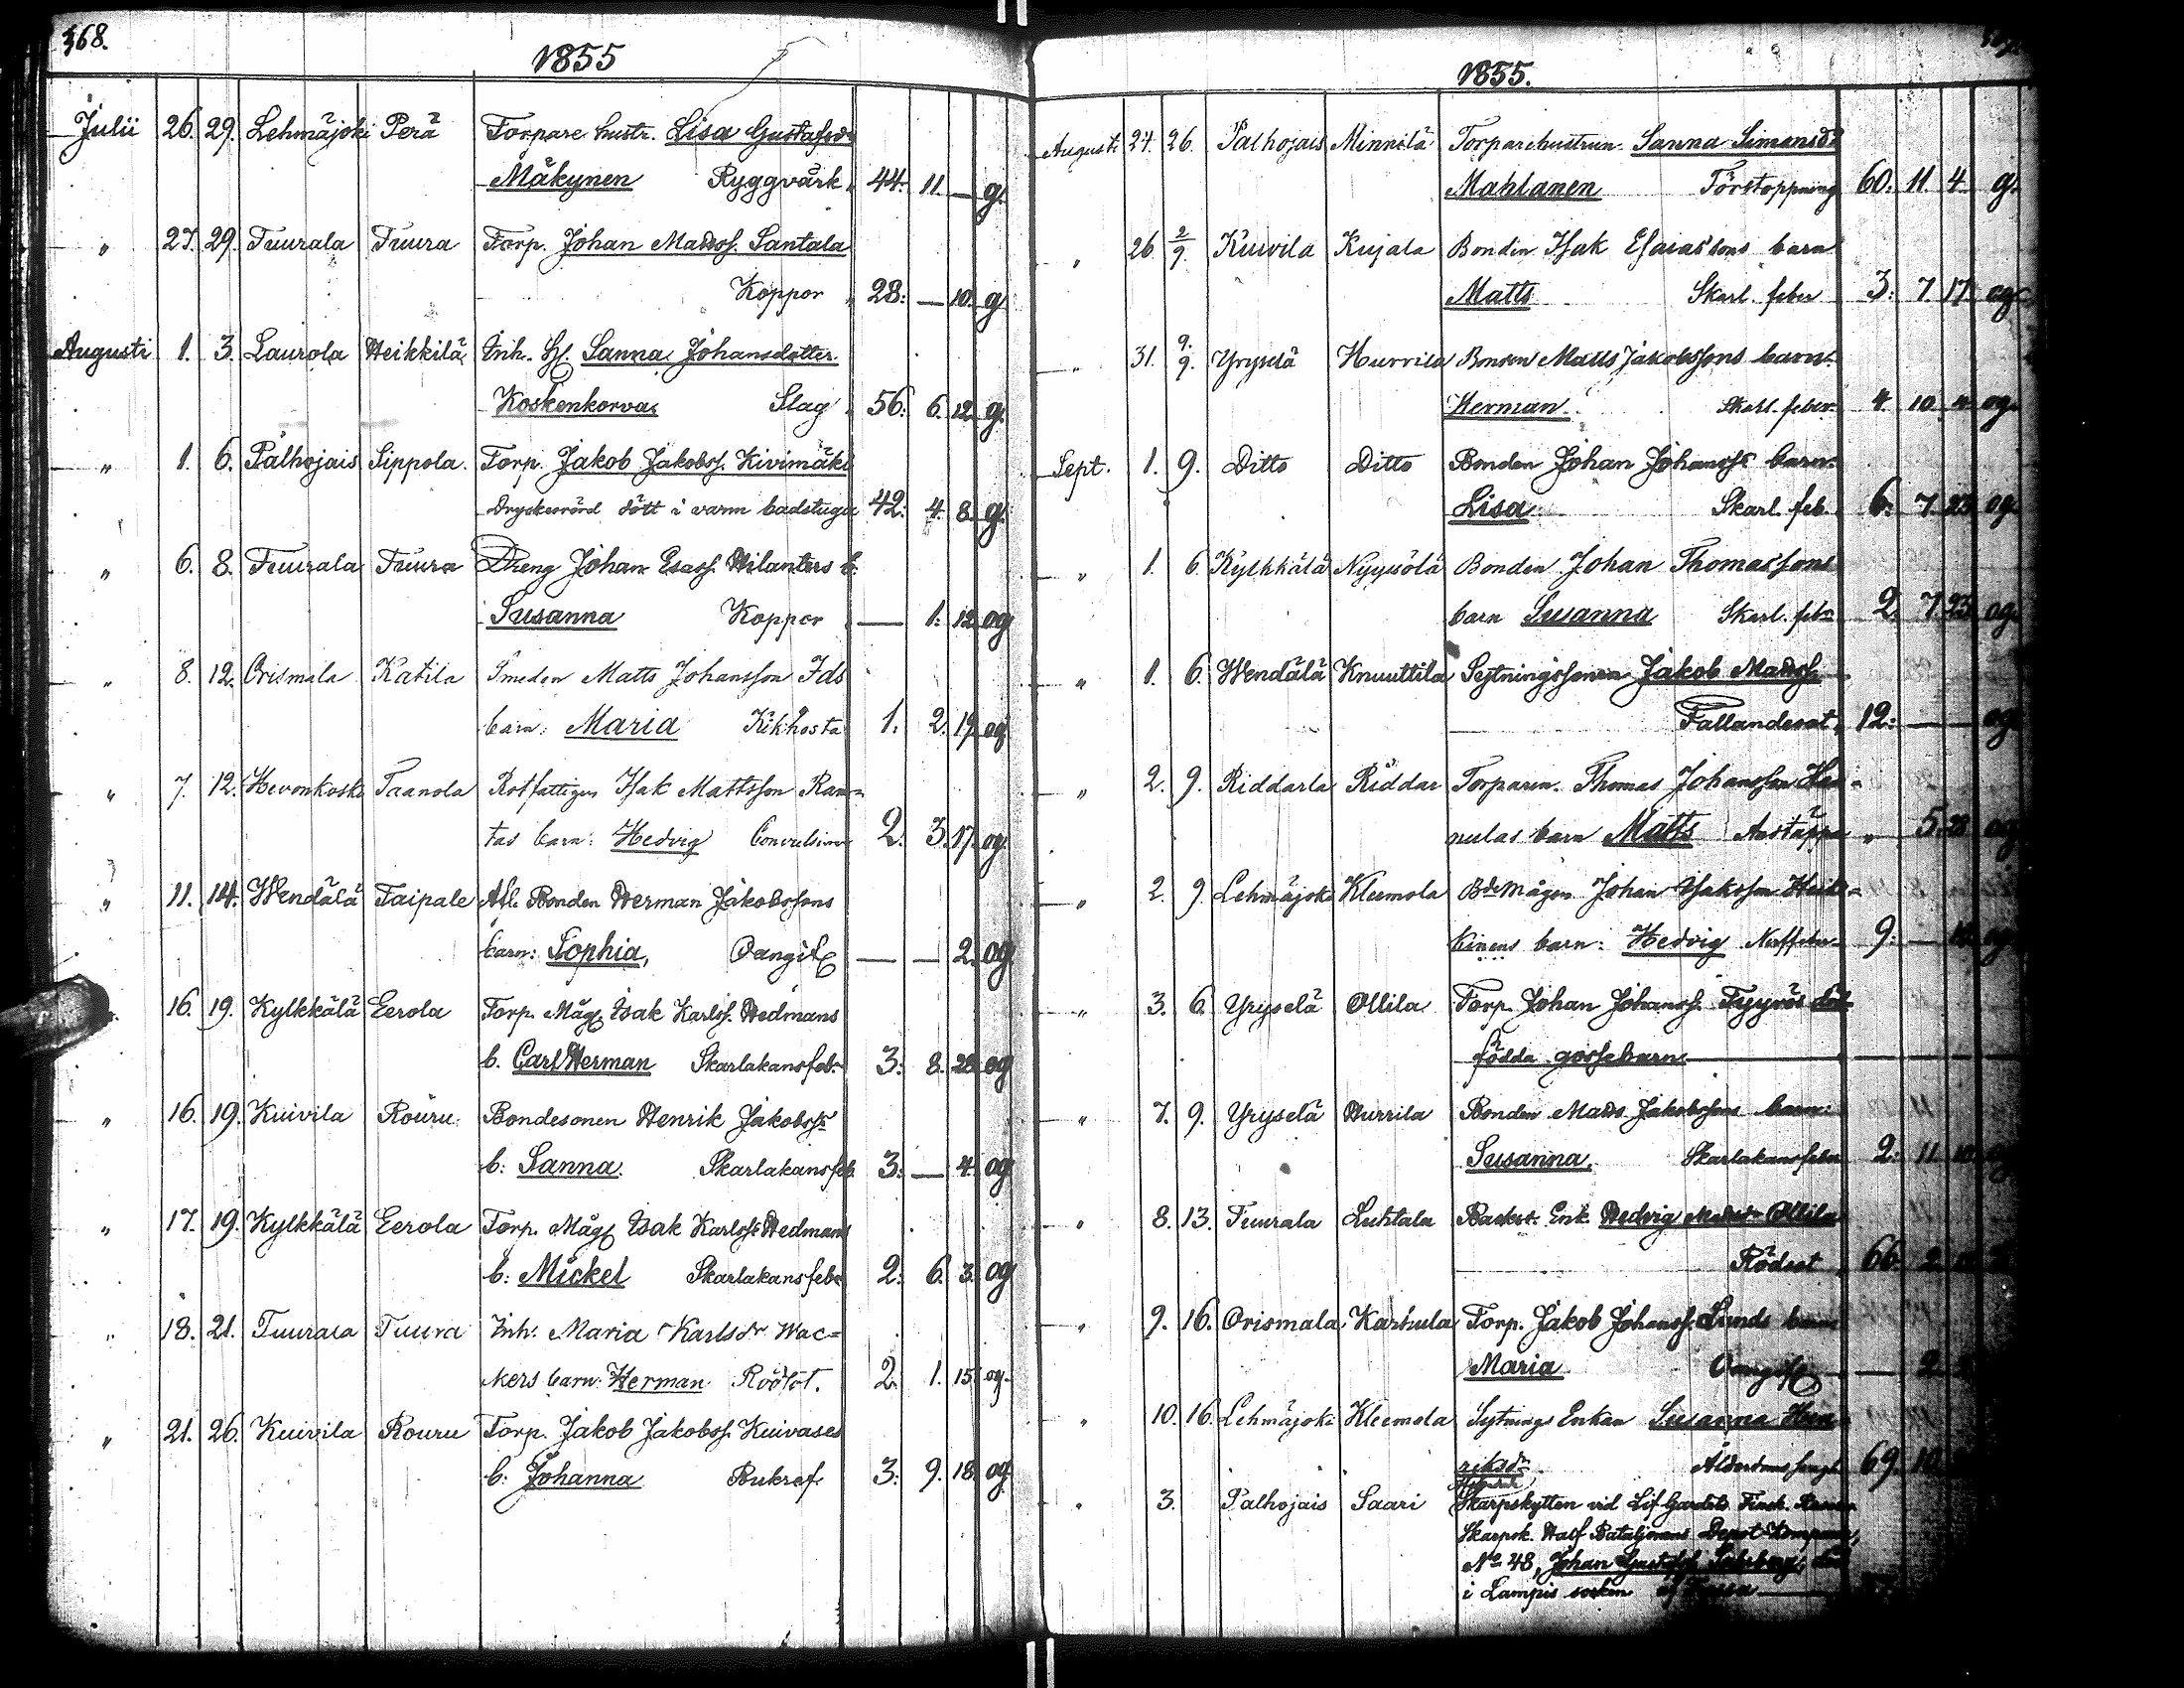 368.
1855
Julii 26. 29. Lehmäjoki Perä Torpare hustr. Lisa Gustafsdr
Mäkynen Ryggvärk, 44. 11. — g.
" 27. 29. Tuurala Tuura Torp. Johan Mattss. Santala
Koppor 28: — 10. g.
Augusti 1. 3. Laurola Heikkilä Inh. Hj. Sanna Johansdotter
Koskenkorva, Slag 56: 6. 12. g.
" 1. 6. Palhojais Sippola. Torp. Jakob Jakobss. Kivimäki
Dryckesrörd dött i varm badstuga 42: 4. 8. g.
" 6. 8. Tuurala Tuura Dreng Johan Esass. Hilanters b.
Susanna Koppor — 1. 12. og
" 8. 12. Orismala Katila Smeden Matts Johansson Ids
barn: Maria Kikhosta 1. 2. 19. og
" 7. 12. Hevonkoski Taanola Rotfattigen Isak Mattsson Ran=
tas barn: Hedvig Convulsion 2. 3. 17. og.
" 11. 14. Wendälä Taipale Afl. Bonden Herman Jakobssons
barn: Sophia, Oangif — — 2. og
16. 19. Kylkkälä Eerola Torp. Måg Isak Karlss. Hedmans
b. Carl Herman Skarlakansfebr 3: 8. 28. og
" 16. 19. Kuivila Rouru Bondesonen Henrik Jakobss
b: Sanna. Skarlakansfeb. 3: — 4. og
" 17. 19. Kylkkälä Eerola Torp. Måg Isak Karlss Hedmans
b: Mickel Skarlakansfebr 2: 6. 3. og
" 18. 21. Tuurala Tuura Inh. Maria Karlsdr Wac=
kers barn: Herman Rödsot. 2. 1. 15. og.
" 21. 26. Kuivila Rouru Torp. Jakob Jakobss. Kuivases
b: Johanna Bukref. 3: 9. 18. og
1855.
Augusti 24. 26. Palhojais Minnilä Torparehustrun Sanna Simonsdr
Mahlanen Förstoppning 60: 11. 4. g.
" 26. 2/9. Kuivila Kujala Bonden Isak Esaiassons barn
Matts Skarl. feber 3: 7. 17. og
" 31. 9/9. Yryselä Hurrila Bonden Matts Jakobssons barn:
Herman Skarl. feber 4. 10. 4. og.
Sept. 1. 9. Ditto Ditto Bonden Johan Johanss barn:
Lisa Skarl. feb. 6: 7. 23. og
" 1. 6. Kylkkälä Nyysölä Bonden Johan Thomassons
barn Susanna Skarl. febr 2. 7. 23. og.
" 1. 6. Wendälä Knuuttila Sytningssonen Jakob Mattss.
Fallandesot, 12: — og
" 2. 9. Riddarla Riddar Torparen Thomas Johansson Han=
nulas barn Matts Anstäppa " 5. 28. og
" 2. 9. Lehmäjoki Kleemola Bde Mågen Johan Isaksson Heik=
kinens barn: Hedvig Nerffeber 9: —
" 3. 6. Yryselä Ollila Torp. Johan Johanss. Tyynis död=
födda gossebarn —
" 7. 9. Yryselä Hurrila Bonden Matts Jakobssons barn:
Susanna. Skarlakansfeber 2: 11.
" 8. 13. Tuurala Luhtala Backst. Enk. Hedvig Mattsdr Ollila
Rödsot 66. 2.
" 9. 16. Orismala Karhula Torp. Jakob Johanss. Lunds barn
Maria Oangif — 2.
" 10. 16. Lehmäjoki Kleemola Sytnings Enkan Susanna Hen=
riksdr Ålderdomssvagh. 69. 10.
" 3. Palhojais Saari Skarpskytten vid Lif Gardets Finsk. Reserv
Skarpsk. Half Bataljonens Depot Kompani,
No 48, Johan Gustafss. död
i Lampis socken af